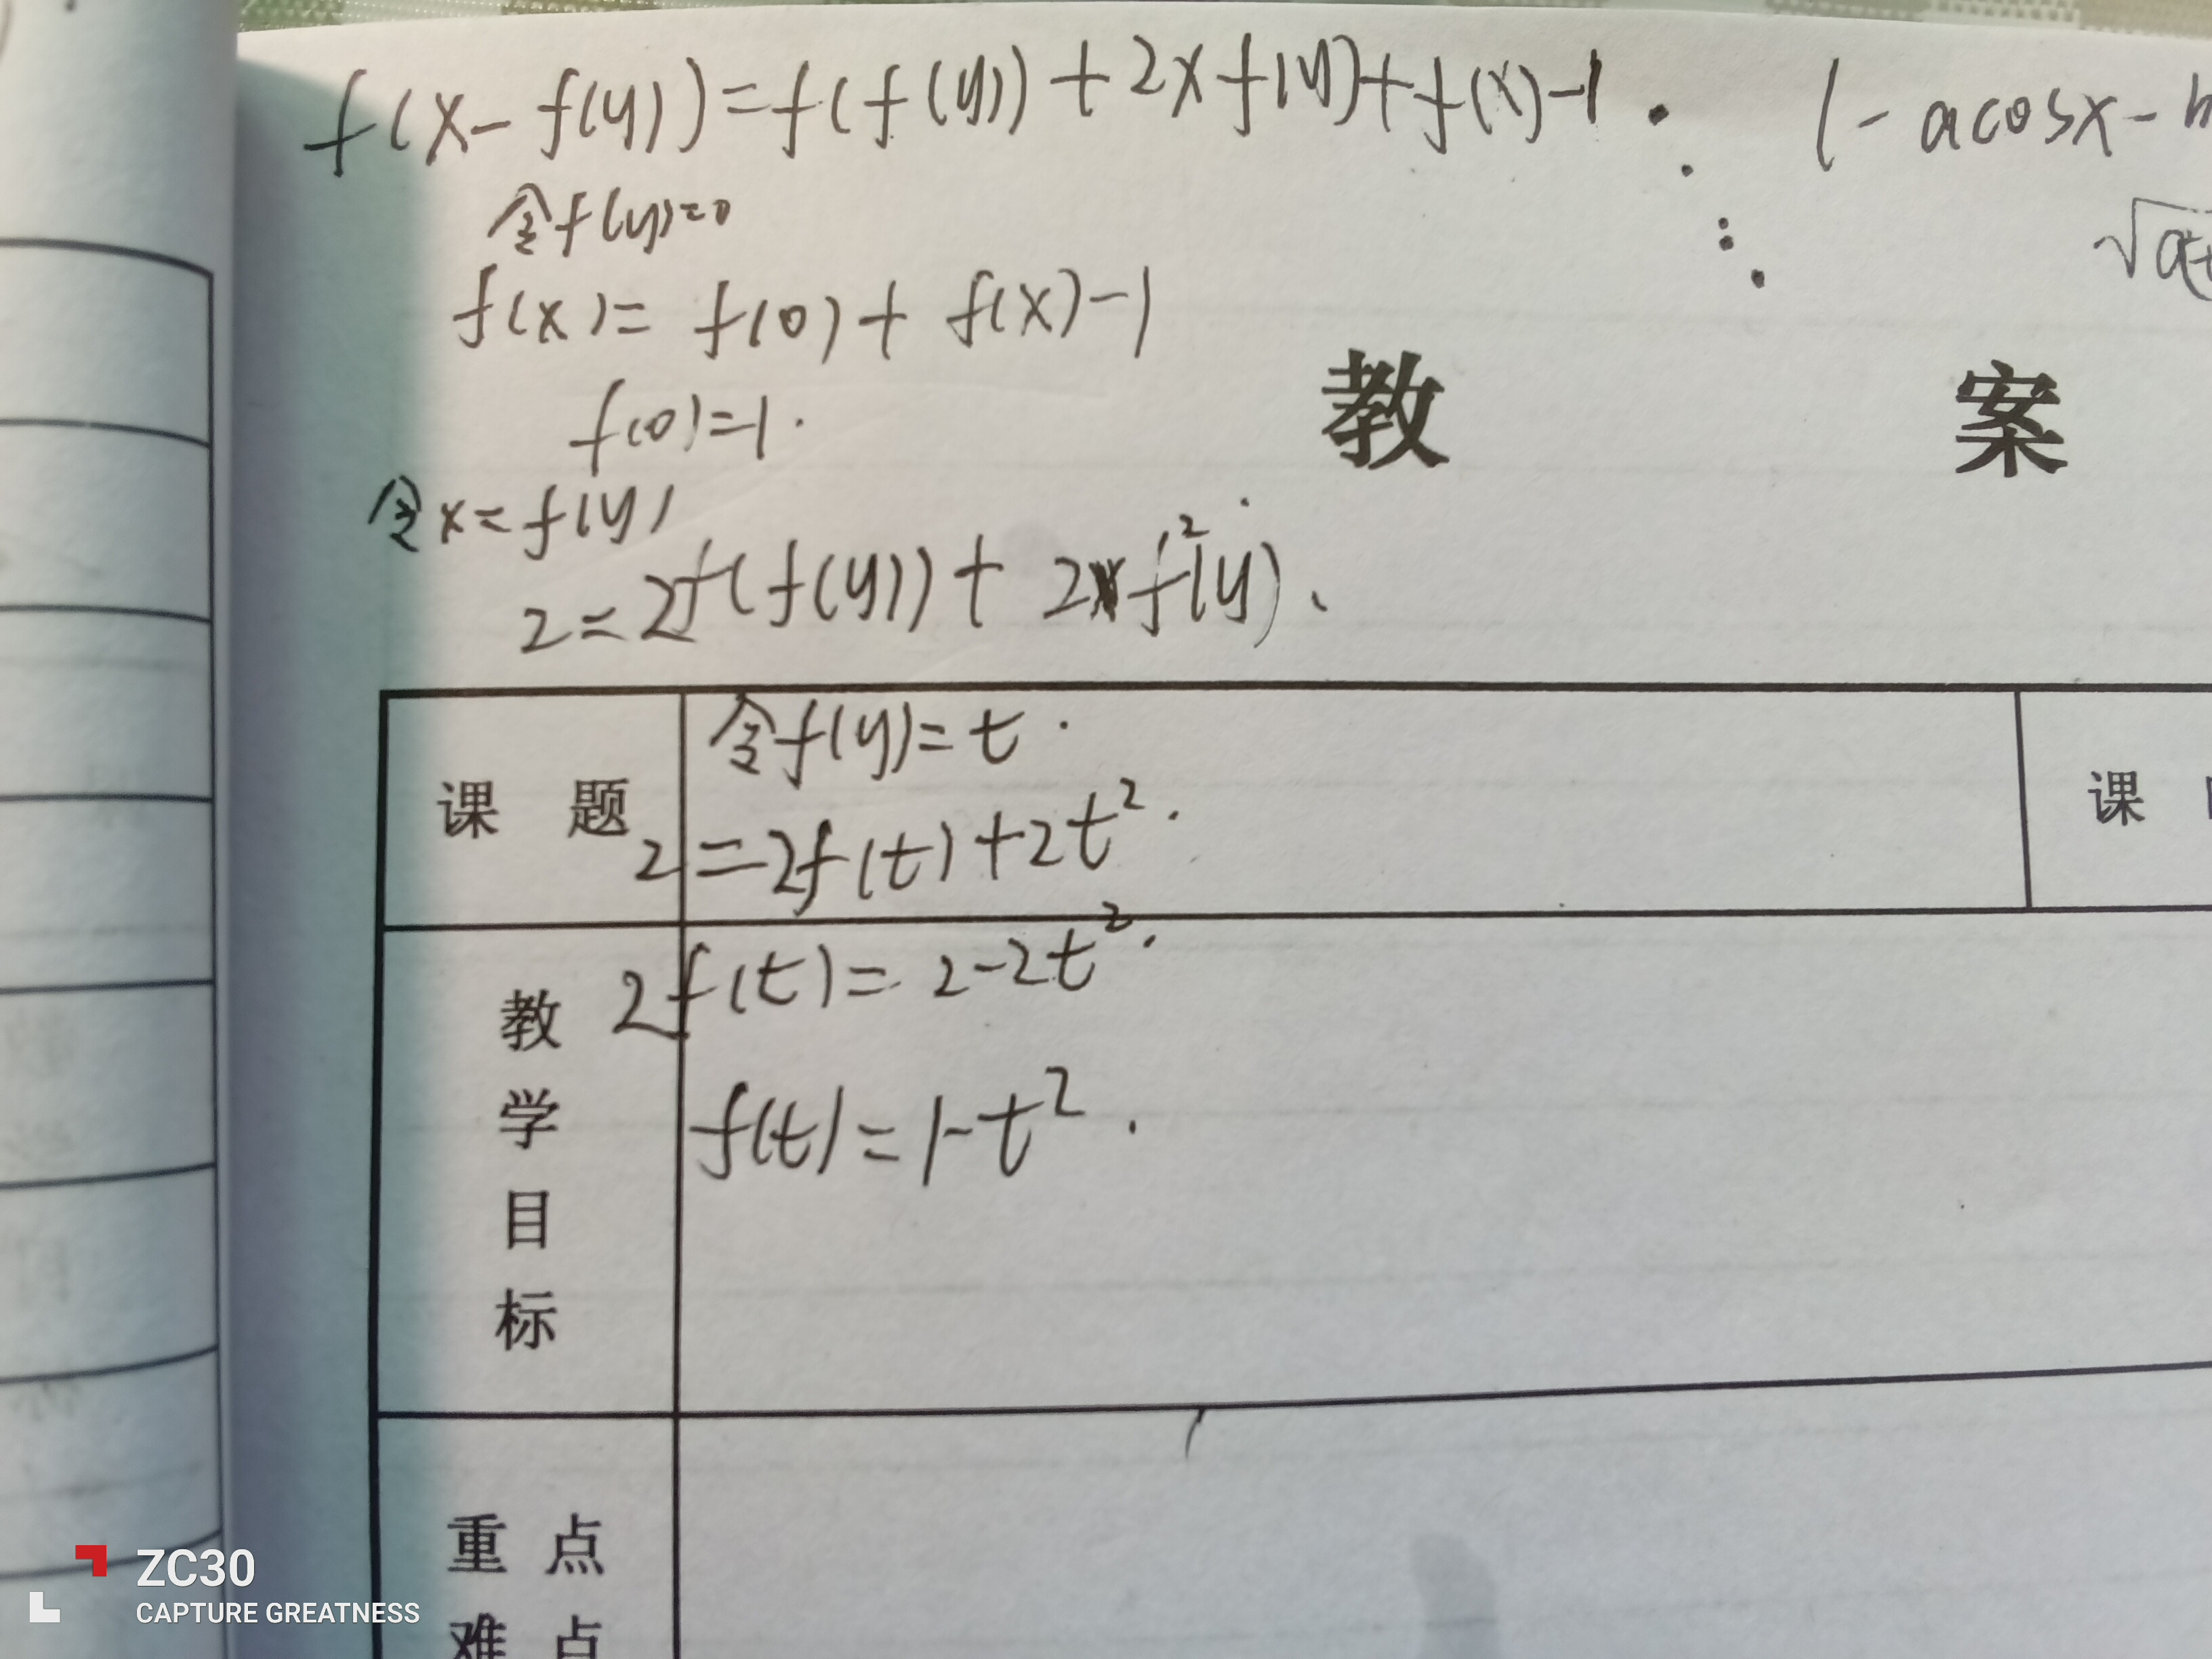 f(x-f(y))=f(f(y))+2xf(y)+f(x)-1.
1-acosx-
令f(y)=0
f(x)=f(0)+f(x)-1
f(0)=1.
教 案
令x=f(y)
2=2f(f(y))+2f²(y).
令f(y)=t.
课 题
课
2=2f(t)+2t².
2f(t)=2-2t².
f(t)=1-t².
教
学
目
标
重 点
难 点
ZC30
CAPTURE GREATNESS